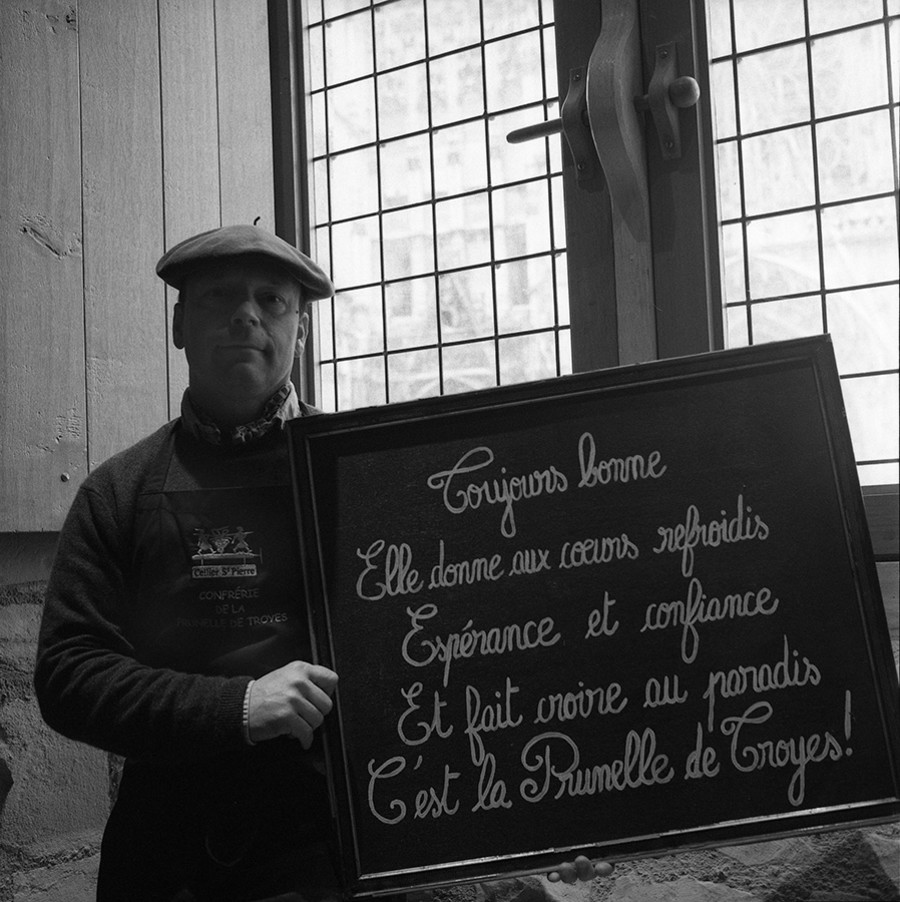 Toujours bonne
Elle donne aux coeurs refroidis
Espérance et confiance
Et fait croire au paradis
C'est la Prunelle de Troyes!
Cellier St Pierre
CONFRÉRIE
DE LA
PRUNELLE DE TROYES